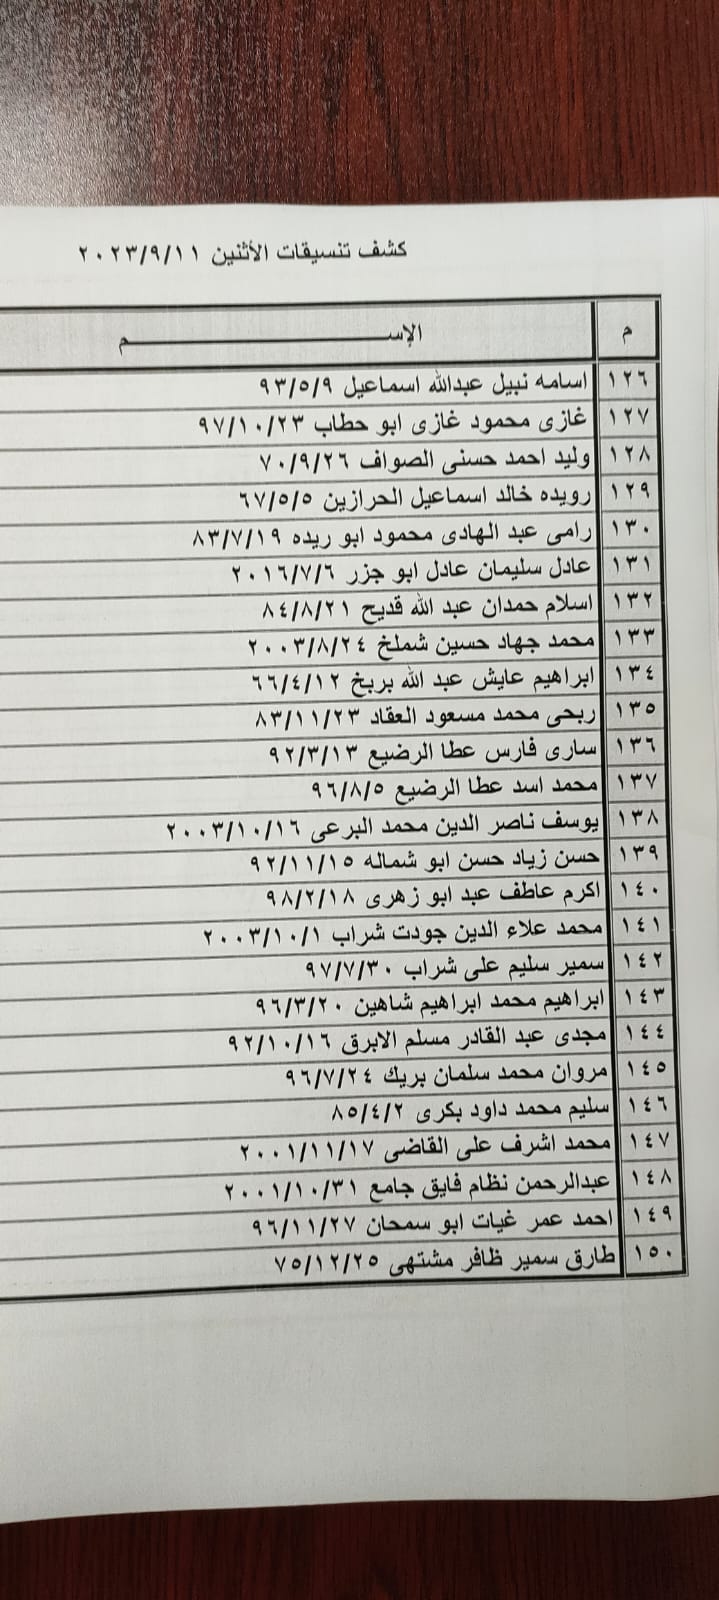 كشف تنسيقات الأثنين ٢٠٢٣/٩/١١
م الإســـــــــــــــــــــم
١٢٦ اسامه نبيل عبدالله اسماعيل ٩٣/٥/٩
١٢٧ غازى محمود غازى ابو حطاب ٩٧/١٠/٢٣
١٢٨ وليد احمد حسنى الصواف ٧٠/٩/٢٦
١٢٩ رويده خالد اسماعيل الحرازين ٦٧/٥/٥
١٣٠ رامى عبد الهادى محمود ابو ريده ٨٣/٧/١٩
١٣١ عادل سليمان عادل ابو جزر ٢٠١٦/٧/٦
١٣٢ اسلام حمدان عبد الله قديح ٨٤/٨/٢١
١٣٣ محمد جهاد حسين شملخ ٢٠٠٣/٨/٢٤
١٣٤ ابراهيم عايش عبد الله بربخ ٦٦/٤/١٢
١٣٥ ربحى محمد مسعود العقاد ٨٣/١١/٢٣
١٣٦ سارى فارس عطا الرضيع ٩٢/٣/١٣
١٣٧ محمد اسد عطا الرضيع ٩٦/٨/٥
١٣٨ يوسف ناصر الدين محمد البرعى ٢٠٠٣/١٠/١٦
١٣٩ حسن زياد حسن ابو شماله ٩٢/١١/١٥
١٤٠ اكرم عاطف عبد ابو زهرى ٩٨/٢/١٨
١٤١ محمد علاء الدين جودت شراب ٢٠٠٣/١٠/١
١٤٢ سمير سليم على شراب ٩٧/٧/٣٠
١٤٣ ابراهيم محمد ابراهيم شاهين ٩٦/٣/٢٠
١٤٤ مجدى عبد القادر مسلم الابرق ٩٢/١٠/١٦
١٤٥ مروان محمد سلمان بريك ٩٦/٧/٢٤
١٤٦ سليم محمد داود بكرى ٨٥/٤/٢
١٤٧ محمد اشرف على القاضى ٢٠٠١/١١/١٧
١٤٨ عبدالرحمن نظام فايق جامع ٢٠٠١/١٠/٣١
١٤٩ احمد عمر غيات ابو سمحان ٩٦/١١/٢٧
١٥٠ طارق سمير ظافر مشتهى ٧٥/١٢/٢٥